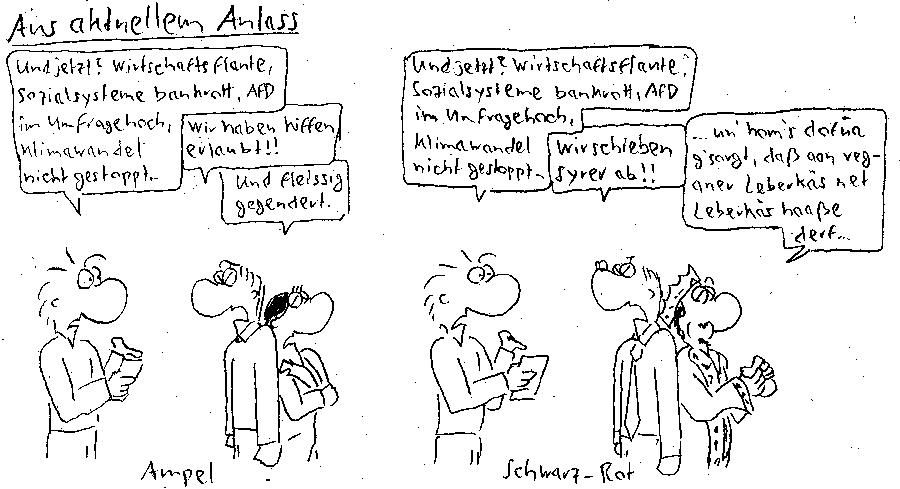 Aus aktuellem Anlass
Und jetzt? Wirtschaftsflaute,
Sozialsysteme bankrott, AfD
im Umfragehoch,
Klimawandel
nicht gestoppt...
Wir haben kiffen
erlaubt!!
Und fleissig
gegendert.
Und jetzt? Wirtschaftsflaute,
Sozialsysteme bankrott, AfD
im Umfragehoch,
Klimawandel
nicht gestoppt...
Wir schieben
Syrer ab!!
... un' ham's dafüa
g'sorgt, daß aan veg-
aner Leberkäs net
Leberkäs haaße
derf...
Ampel
Schwarz-Rot